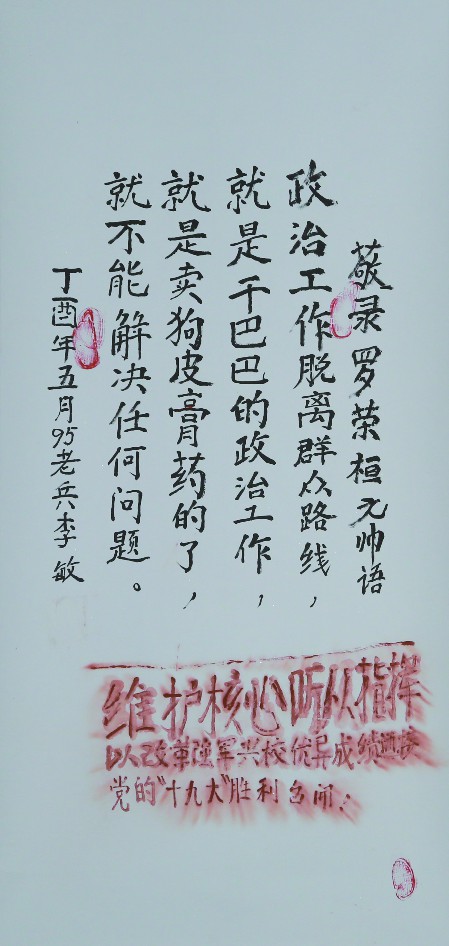 敬录罗荣桓元帅语
政治工作脱离群众路线，
就是干巴巴的政治工作，
就是卖狗皮膏药的了，
就不能解决任何问题。
丁酉年五月95老兵李敏
维护核心听从指挥
以改革强军兴校优异成绩迎接
党的“十九大”胜利召开！